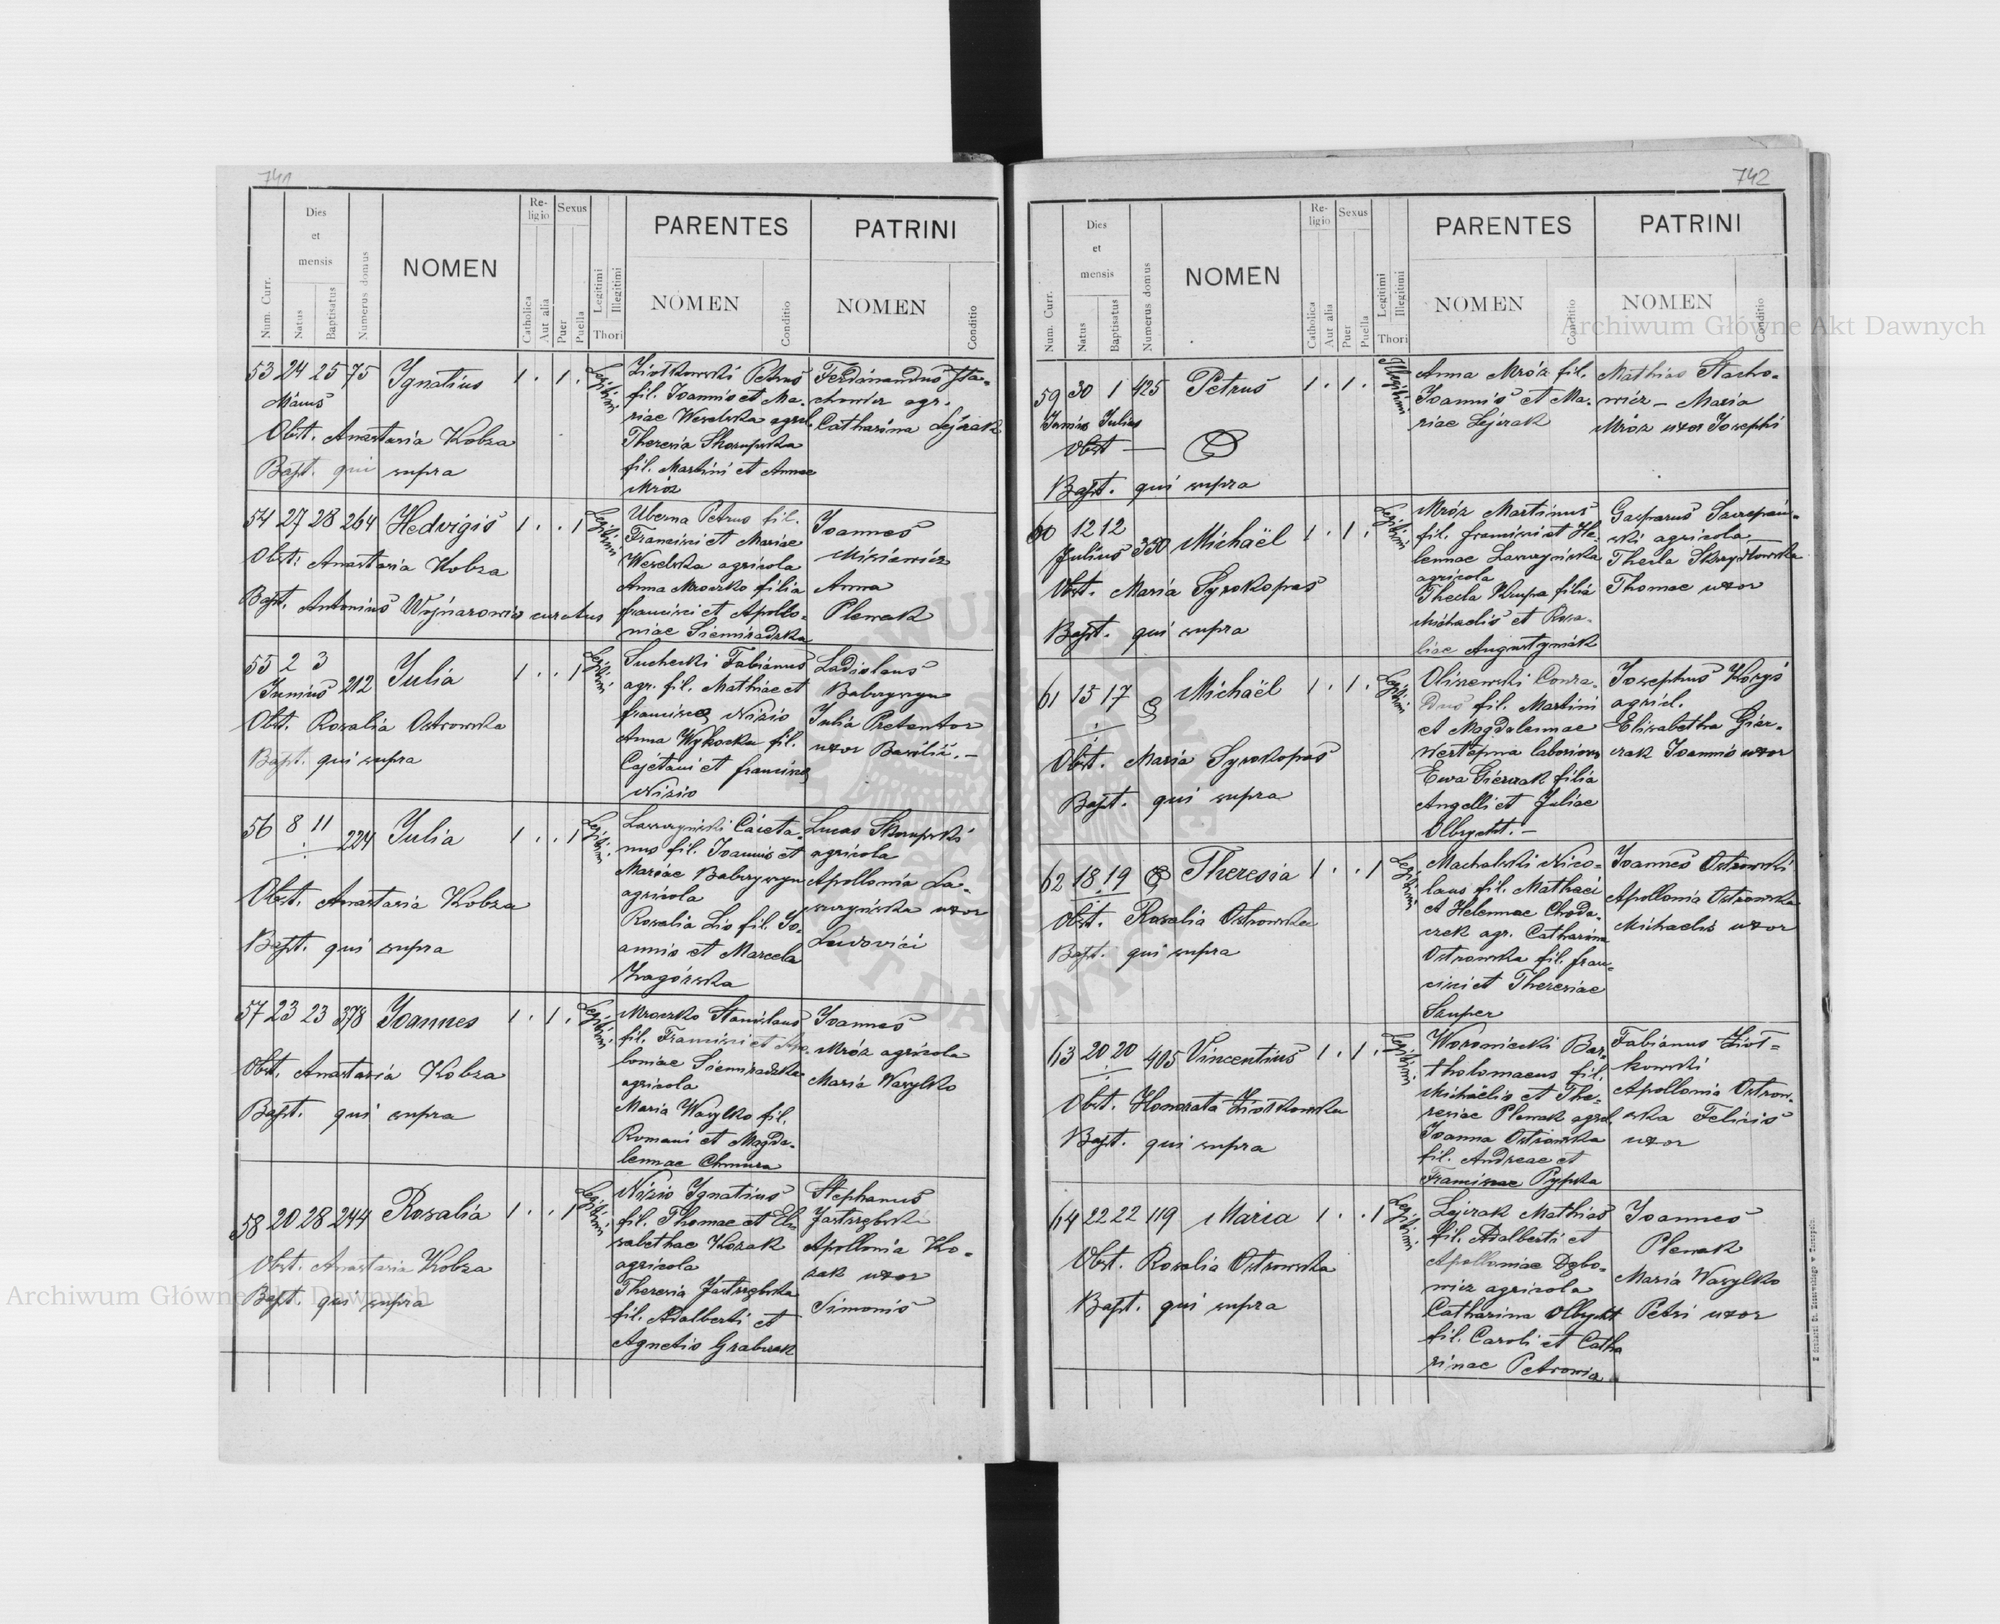 741
Num. Curr.
Dies
et
mensis
Natus
Baptisatus
Numerus domus
NOMEN
Re-
ligio
Catholica
Aut alia
Sexus
Puer
Puella
Legitimi
Illegitimi
Thori
PARENTES
NOMEN
Conditio
PATRINI
NOMEN
Conditio
53 24 25 75 Ignatius 1 . 1 .
Maius
Obst. Anastasia Kobza
Bapt. qui supra
Legitimi
Ziołkowski Petrus
fil. Joannis et Ma-
riae Weselska agricol.
Theresia Skorupska
fil. Martini et Annae
Mróz
Ferdinandus Sta-
chowicz agr.
Catharina Lejczak
54 27 28 264 Hedvigis 1 . . 1
Obst. Anastasia Kobza
Bapt. Antonius Wojnarowicz curatus
Legitimi
Uberna Petrus fil.
Francisci et Mariae
Weselska agricola
Anna Mroczko filia
Francisci et Apollo-
niae Siemiradzka
Joannes
Anna
Plewak
55 2 3 212 Julia 1 . . 1
Junius
Obst. Rosalia Ostrowska
Bapt. qui supra
Legitimi
Suchecki Fabianus
agr. fil. Mathiae et
Franciscae Nizio
Anna Wysocka fil.
Cajetani et Franciscae
Nizio
Ladislaus
Babczyszyn
Julia Pretentor
uxor Basilii. -
56 8 11 224 Julia 1 . . 1
Obst. Anastasia Kobza
Bapt. qui supra
Legitimi
Laszczyński Caieta-
nus fil. Joannis et
Mariae Babczyszyn
agricola
Rosalia Lis fil. Jo-
annis et Marcela
Zagórska
Lucas Skorupski
agricola
Apollonia La-
szczyńska uxor
Ludovici
57 23 23 378 Joannes 1 . 1 .
Obst. Anastasia Kobza
Bapt. qui supra
Legitimi
Mroczko Stanislaus
fil. Francisci et Apo-
loniae Siemiradzka
agricola
Maria Wasylko fil.
Romani et Magda-
lennae Chmura
Joannes
Mróz agricola
Maria Wasylko
58 20 28 244 Rosalia 1 . . 1
Obst. Anastasia Kobza
Bapt. qui supra
Legitimi
Nizio Ignatius
fil. Thomae et Eli-
sabethae Kozak
agricola
Theresia Jastrzębska
fil. Adalberti et
Agnetis Grabczak
Stephanus
Jastrzębski
Apollonia Ko-
zak uxor
Simonis
742
Num. Curr.
Dies
et
mensis
Natus
Baptisatus
Numerus domus
NOMEN
Re-
ligio
Catholica
Aut alia
Sexus
Puer
Puella
Legitimi
Illegitimi
Thori
PARENTES
NOMEN
Conditio
PATRINI
NOMEN
Conditio
59 30 1 425 Petrus 1 . 1 .
Junius Julius
Obst —
Bapt. qui supra
Illegitimi
Anna Mróz fil.
Joannis et Ma-
riae Lejczak
Mathias Stacho-
wicz - Maria
Mróz uxor Josephi
60 12 12 350 Michaël 1 . 1 .
Julius
Obst. Maria Syrokopas
Bapt. qui supra
Legitimi
Mróz Martinus
fil. Francisci et He-
lennae Laszczyńska
agricola
Thecla Krupa filia
Michaelis et Rosa-
liae Augustyniak
Gasparus Szczepań-
ski agricola
Thecla Skrzydłowska
Thomae uxor
61 15 17 Michaël 1 . 1 .
Obst. Maria Syrokopas
Bapt. qui supra
Legitimi
Oliszewski Conra-
dus fil. Martini
et Magdalennae
Wertepna laboriosus
Ewa Gierczak filia
Angelli et Juliae
Olbrycht. -
Josephus Koryś
agricol.
Elisabetha Gier-
czak Joannis uxor
62 18 19 Theresia 1 . . 1
Obst. Rosalia Ostrowska
Bapt. qui supra
Legitimi
Machalski Nico-
laus fil. Mathaei
et Helennae Choda-
czek agr. Catharina
Ostrowska fil. Fran-
cisci et Theresiae
Sauper
Joannes Ostrowski
Apollonia Ostrowska
Michaelis uxor
63 20 20 405 Vincentius 1 . 1 .
Obst. Honorata Ziółkowska
Bapt. qui supra
Legitimi
Woroniecki Bar-
tholomaeus fil.
Michaëlis et The-
resiae Plewak agricol.
Joanna Ostrowska
fil. Andreae et
Franciscae Pypska
Fabianus Ziół-
kowski
Apollonia Ostrow-
ska Felicis
uxor
64 22 22 119 Maria 1 . . 1
Obst. Rosalia Ostrowska
Bapt. qui supra
Legitimi
Lejczak Mathias
fil. Adalberti et
Apolloniae Dębo-
wicz agricola
Catharina Olbrycht
fil. Caroli et Catha
rinae Petrowicz
Joannes
Plewak
Maria Wasylko
Petri uxor
Archiwum Główne Akt Dawnych
Archiwum Główne Akt Dawnych